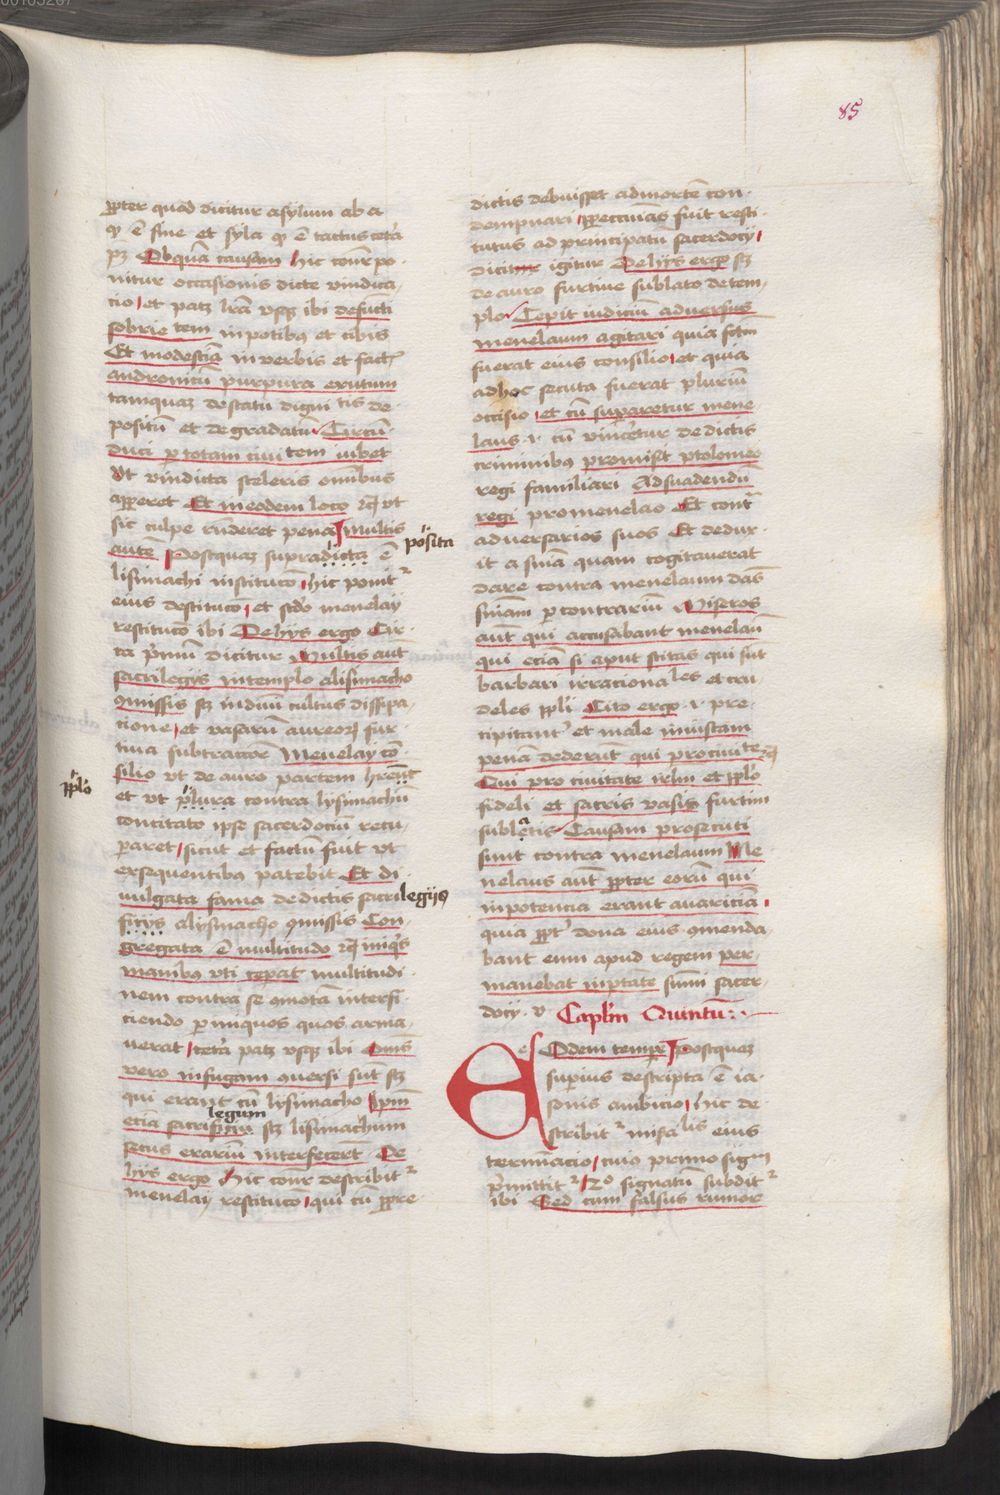 85
ꝓpter quad dicitur asylum ab a
qꝫ ē sine et syla qꝫ ē tactus cetā
pꝫ Ob quā causam hic cōnr po
nitur occasionis dicte vindica
cio et patꝫ lrā vsqꝫ ibi defūcti
sobrietatem in potibus et cibis
Et modestiā in verbis et fact
andronicū purpura exutum
tamquaꝫ de statu digni tis de
positū et degradatū Circū
duci p totam ciui tem iubet
Vt vindicta sceleris omībus
apperet Et in eodem loco vt
sic culpe rnderet pena Multis
autē Postquaꝫ supradicta ē posita
lisimachi institucō hic ponit
eius destitucō et scdo menelay
restitucō ibi De hijs ergo Cir
ca pmū dicitur Multis aut
sacrilegijs in templo a lisimacho
9missis sꝫ in diuiū cultus dissipa
cione et vasarū aureoꝝ fur
tiua subtraccōe Menelay cō
silio vt de auro partem hrent
ppl'o
et vt plura contra lysimachū
concitato ipse sacerdociū recu
paret sicut et factū fuit vt
ex sequentibus patebit Et di
uulgata fama de dictis sacrilegijs
ficijs a lysimacho 9missis Con
gregata ē multitudo iniqs
manibus vti cepat multitudi
nem contra se 9motā interfi
ciendo p iniquos quos arma
uerat cetā patꝫ vsqꝫ ibi Oms
vero in fugam 9uersi sūt sꝫ
qui erant cū lysimacho Ipm
legum
eciā sacrificū sꝫ lisimachum
secus erariū interfecerūt De
hijs ergo Hic cōnr describit
menelay restitucō qui cū ppre
dictis debuisset ad mortē con
dempnari p pecunias fuit resti
tutus ad principatū sacerdocij
dicitur igitur De hijs ergo sꝫ
de auro furtiue sublato de tem
plo Cepit iudiciū aduersus
menelaum agitari quia fctm
fuerat eius consilio et quia
ad hoc secuta fuerat pluriū
occisio et cū superetur mene
laus .i. cū vinceretur de dictis
criminibus promisit ptolomeo
regi familiari Ad suadendū
regi pro menelao Et contr
aduersarios suos Et dedux
it a sniā quam cogitauerat
dare contra menelaum dās
sniam p contrariū Miseros
aūt qui accusabant menelaū
qui eciā si aput scitas qui sūt
barbari irracionales et cru
deles ppli Cito ergo .i. pre
cipitant' et male iniustam
penā dederūt qui pro ciuite
Qui pro ciuitate irlm et pplo
fideli et sacris vasis furtim
sublatis Causam prosecuti
sunt contra menelaum Me
nelaus aūt ppter eorū qui
in potencia erant auariciā
quia ppt' dona eius 9menda
bant eum apud regem per
manebat in ptāte sūmi sacer
docij .v Caplm Quintū
e Eodem tempr Postquaꝫ
supius descripta ē ia
sonis ambicio hic de
scribit misa lis eius
terminacio cuiꝰ primo sigm
pmittit 2o signatū subdit
ibi Sed cum falsus rumor